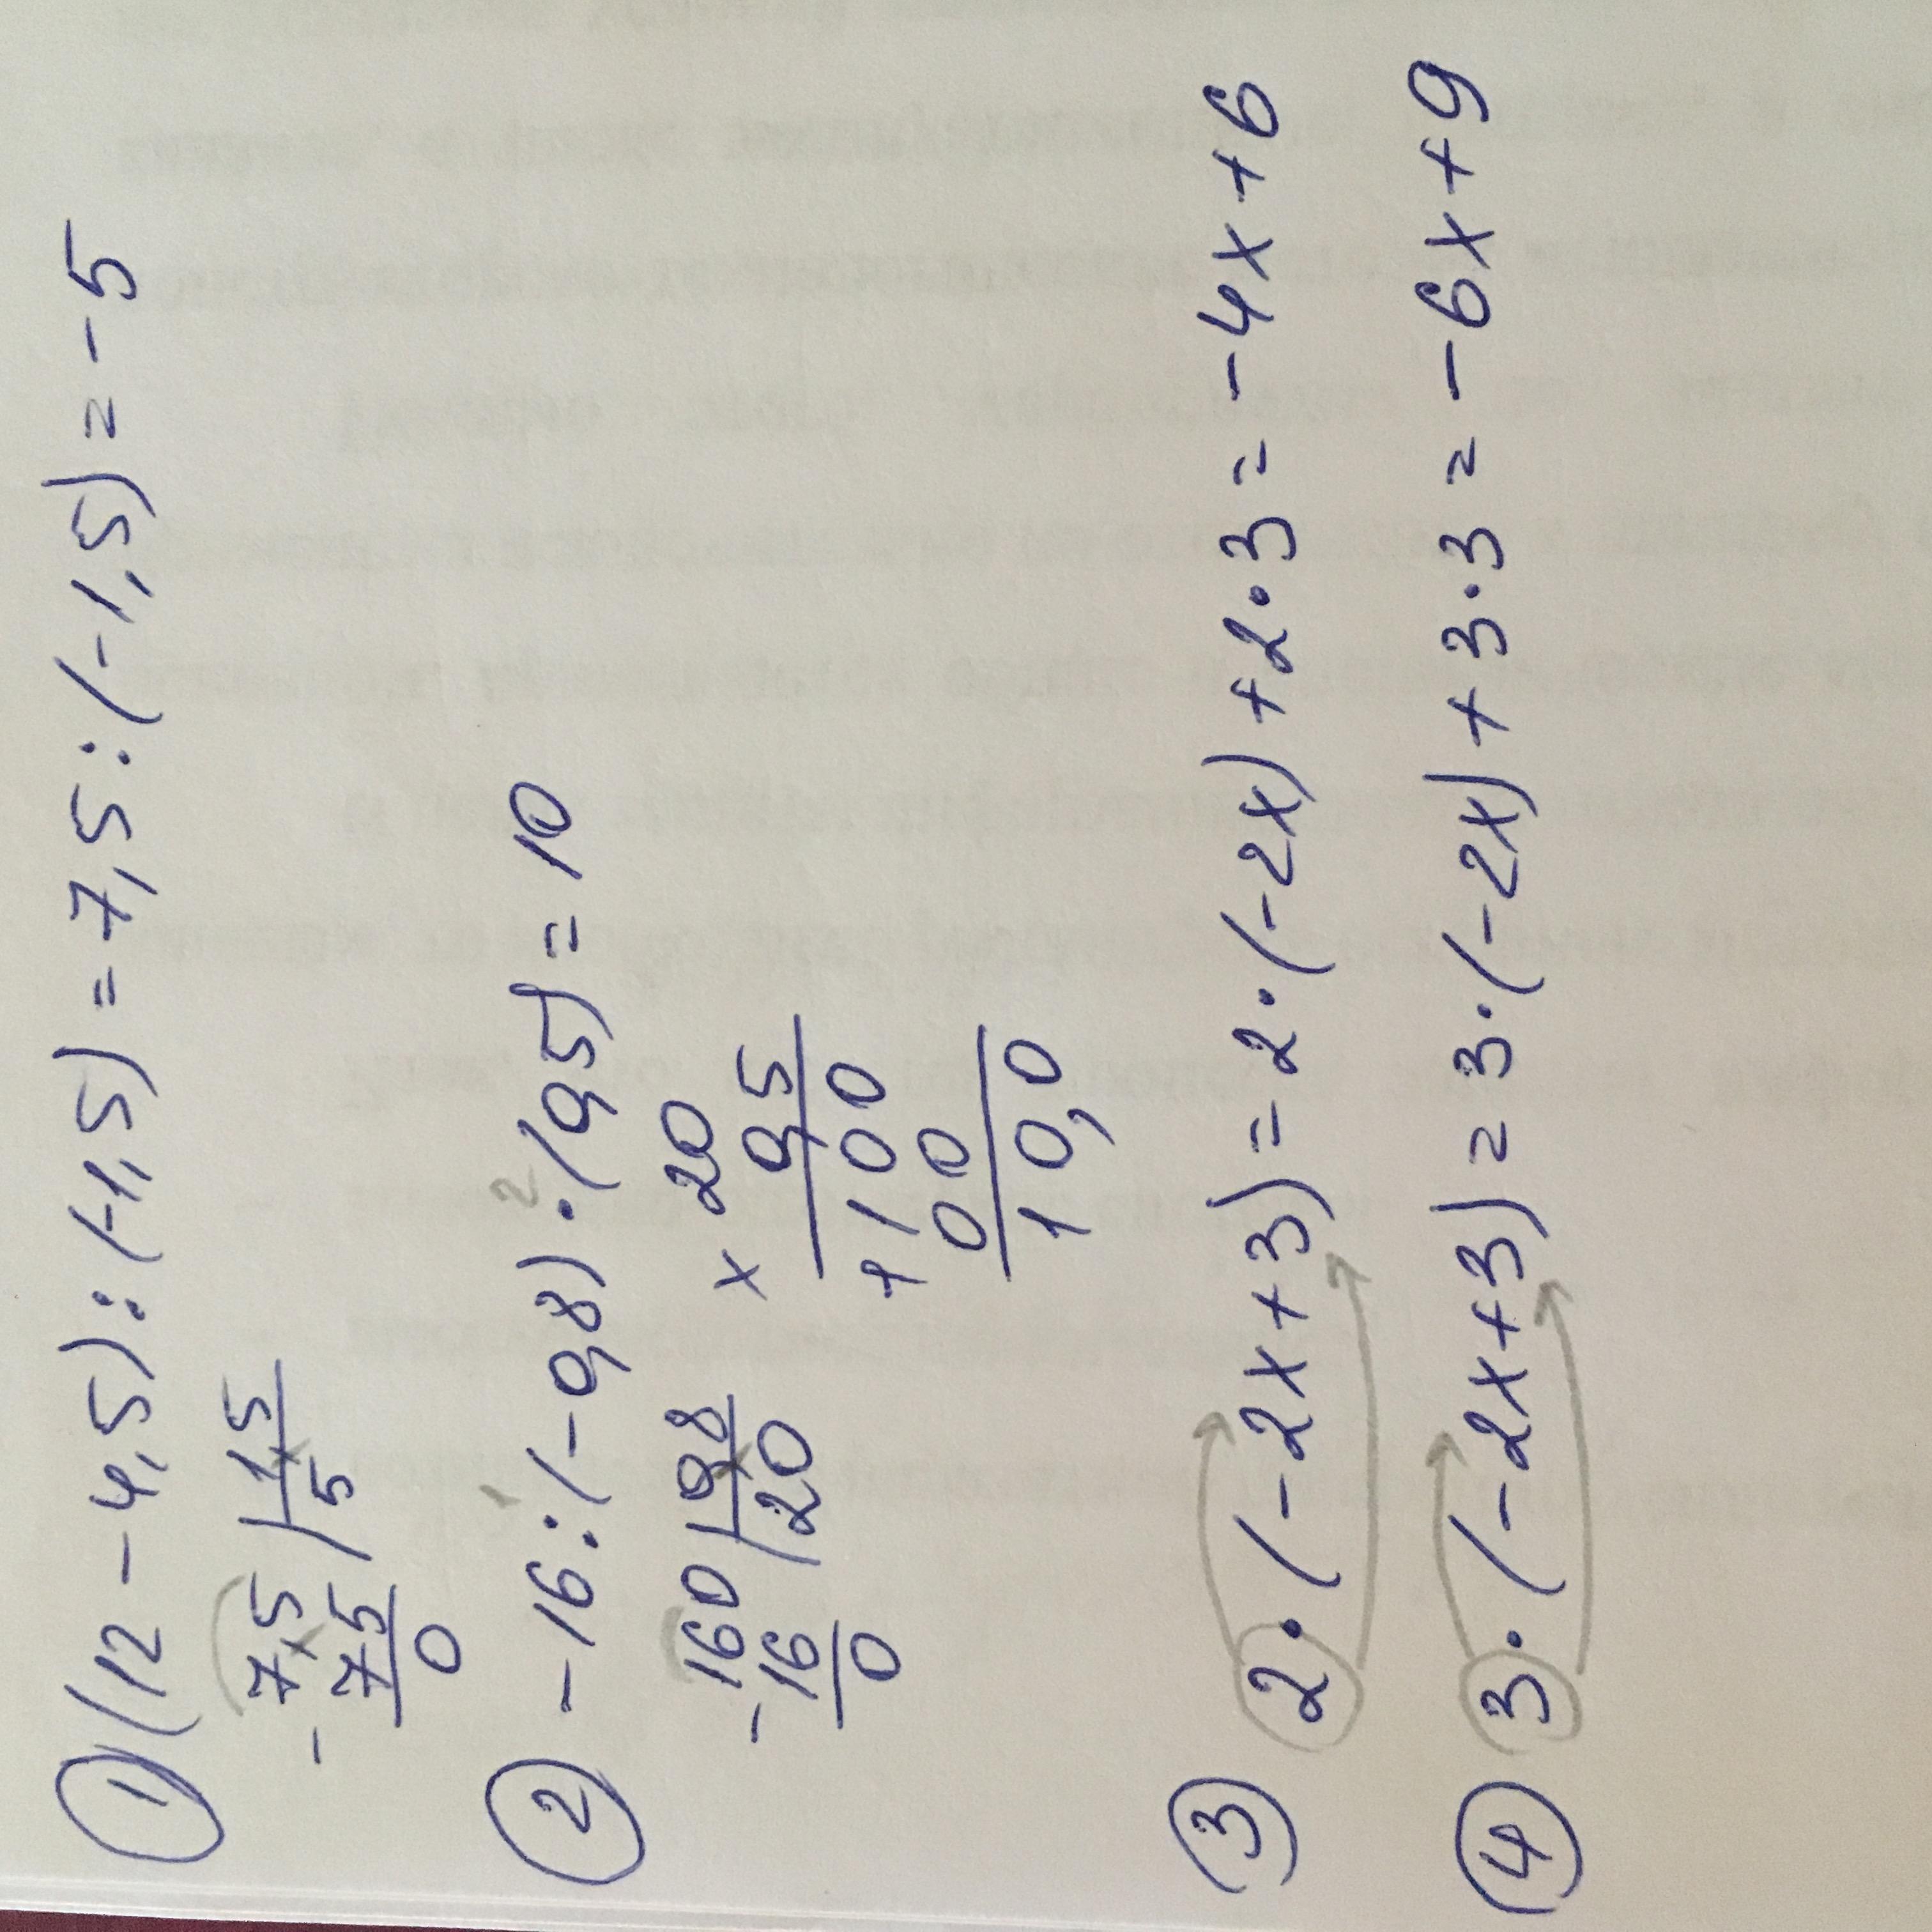 ① (12 - 4,5) : (-1,5) = 7,5 : (-1,5) = -5
- 7,5 | 1,5
75 | 5
0
② -16 : (-0,8) · (0,5) = 10
1 2
- 160 | 0,8
16 | 20
0
× 20
0,5
+ 100
00
10,0
③ 2 · (-2x+3) = 2 · (-2x) + 2 · 3 = -4x + 6
④ 3 · (-2x+3) = 3 · (-2x) + 3 · 3 = -6x + 9